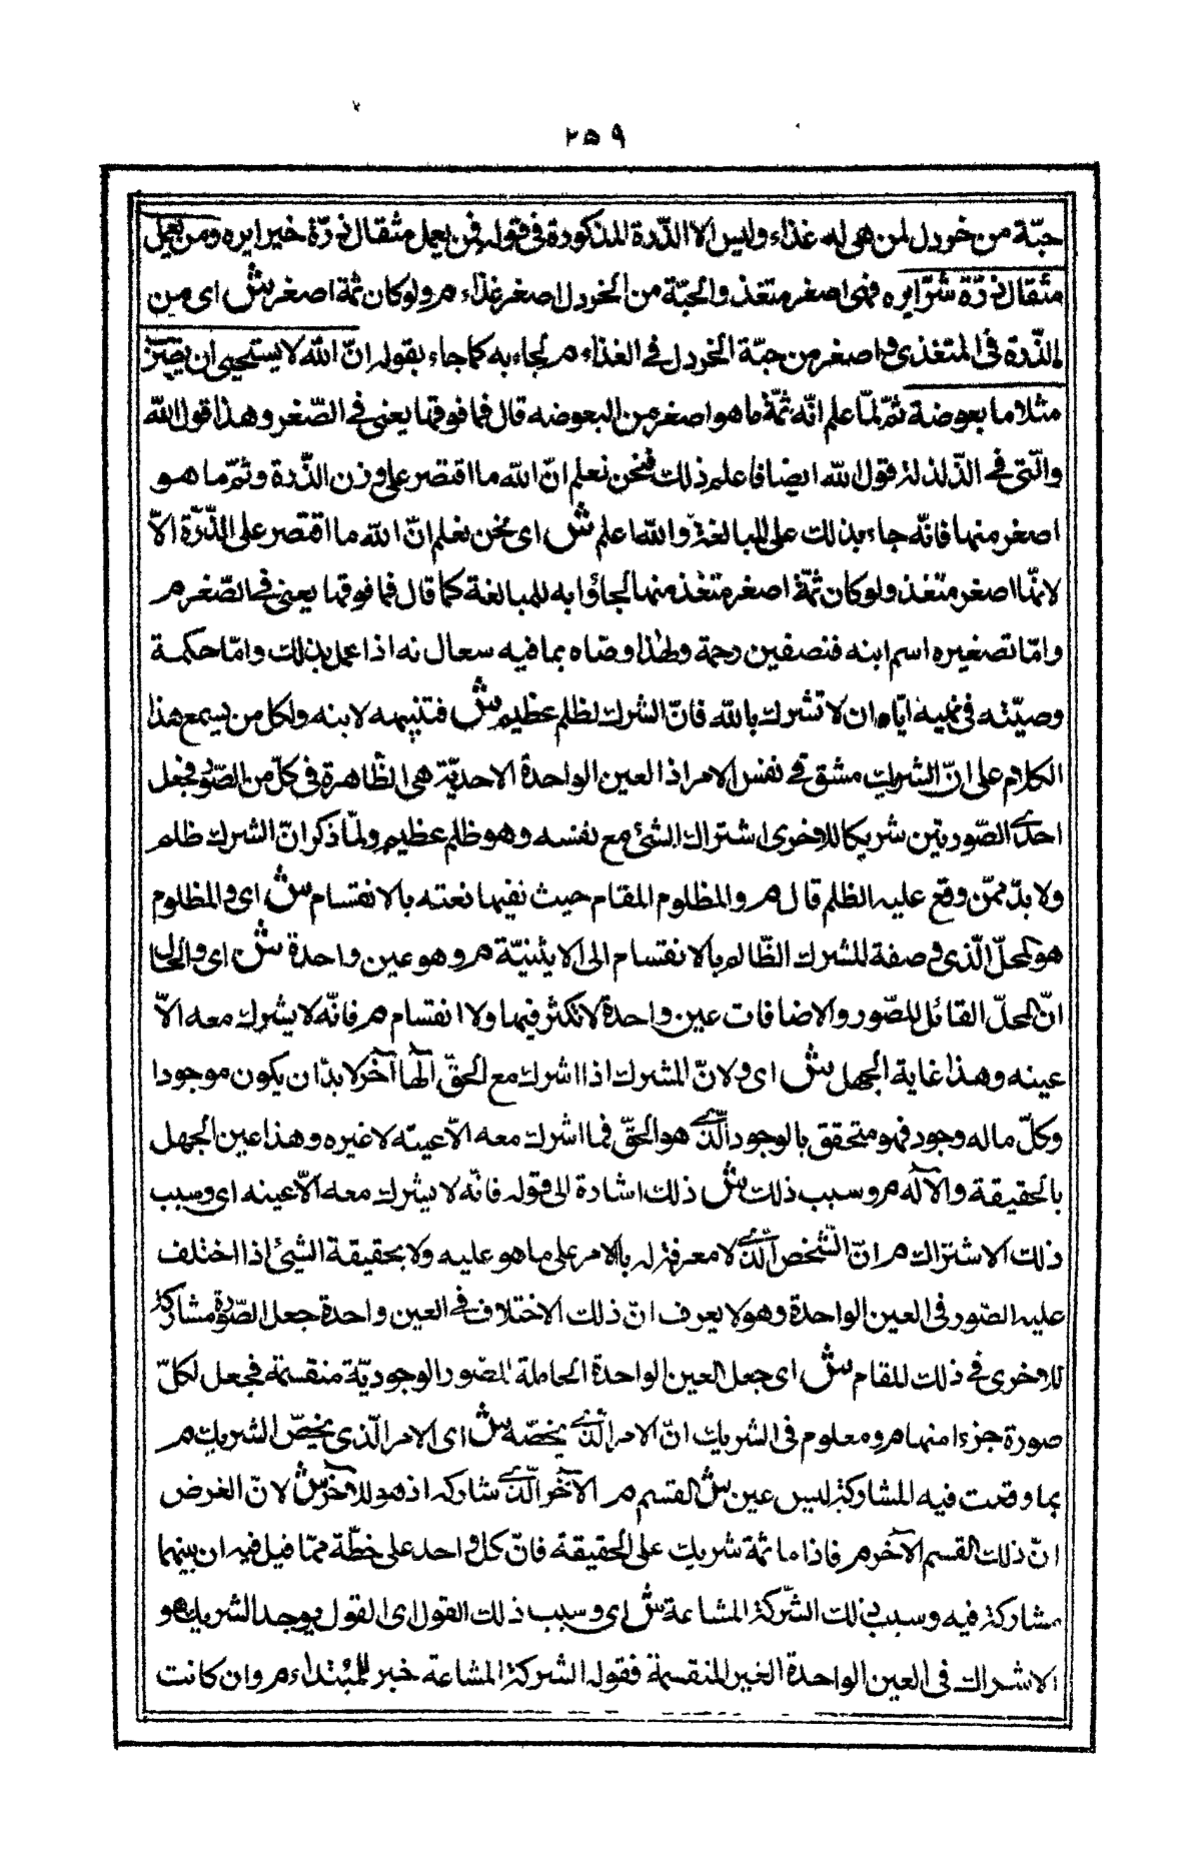 ٢٥٩
حبّة من خردل لمن هى له غذاء وليس الا الذّرة المذكورة فى قوله فمن يعمل مثقال ذرّة خيرا يره ومن يعمل
مثقال ذرّة شرّا يره فهى اصغر متغذ والحبّة من الخردل اصغر غذاء م ولو كان ثمّة اصغر ش اى من
الذّرة فى المتغذى واصغر من حبّة الخردل فى الغذاء م لجاء به كما جاء بقوله انّ الله لا يستحيى ان يضرب
مثلا ما بعوضة ثمّ لمّا علم انّه ثمّة ما هو اصغر من البعوضه قال فما فوقها يعنى فى الصّغر وهذا قول الله
والّتى فى الذّلزلة قول الله ايضا فاعلم ذلك فنحن نعلم انّ الله ما اقتصر على وزن الذّرة وثمّ ما هو
اصغر منها فانّه جاء بذلك على المبالغة والله اعلم ش اى نحن نعلم انّ الله ما اقتصر على الذّرّة الاّ
لانّها اصغر متغذ ولو كان ثمّة اصغر متغذ منها لجاؤا به للمبالغة كما قال فما فوقها يعنى فى الصّغر م
وامّا تصغيره اسم ابنه فتصغير رحمة ولهذا وصّاه بما فيه سعادته اذا عمل بذلك وامّا حكمة
وصيّته فى نهيه ايّاه ان لا تشرك بالله فانّ الشرك لظلم عظيم ش فتنبيه لابنه ولكل من يسمع هذا
الكلام على انّ الشريك مشق فى نفس الامر اذ العين الواحدة الاحديّة هى الظّاهرة فى كلّ من الصّور فجعل
احدى الصّورتين شريكا للاخرى اشتراك الشئ مع نفسه وهو ظلم عظيم ولمّا ذكر انّ الشرك ظلم
ولا بدّ ممّن وقع عليه الظلم قال م والمظلوم المقام حيث نفيها نعته بالانقسام ش اى والمظلوم
هو المحلّ الّذى وصفة المشرك الظّالم بالانقسام الى الاثينيّة م وهو عين واحدة ش اى والحال
انّ المحلّ القائل للصّور والاضافات عين واحدة لا تكثر فيها ولا انقسام م فانّه لا يشرك معه الاّ
عينه وهذا غاية الجهل ش اى ولانّ المشرك اذا اشرك مع الحقّ آلها آخر لا بدّ ان يكون موجودا
وكلّ ما له وجود فهو متحقق بالوجود الّذى هو الحقّ فما اشرك معه الاّ عينه لا غيره وهذا عين الجهل
بالحقيقة والآله م وسبب ذلك ش ذلك اشارة الى قوله فانّه لا يشرك معه الاّ عينه اى وسبب
ذلك الاشتراك م انّ الشّخص الّذى لا معرفة له بالامر على ما هو عليه ولا بحقيقة الشئ اذا اختلف
عليه الصّور فى العين الواحدة وهو لا يعرف انّ ذلك الاختلاف فى العين واحدة جعل الصّورة مشاركة
للاخرى فى ذلك المقام ش اى جعل العين الواحدة الحاملة للصّور الوجوديّة منقسمة فجعل لكلّ
صورة جزءا منها م ومعلوم فى الشريك انّ الامر الّذى يخصّه ش اى الامر الّذى يخصّ الشريك م
بما وقعت فيه المشاركة ليس عين ش القسم م الآخر الّذى شاركه اذ هو للآخر ش لانّ الغرض
انّ ذلك القسم الآخر م فاذا ما ثمة شريك على الحقيقة فانّ كل واحد على خطّة ممّا قيل فيه ان بينهما
مشاركة فيه وسبب ذلك الشّركة المشاعة ش اى وسبب ذلك القول اى القول بوجد الشريك هو
الاشراك فى العين الواحدة الغير المنقسمة فقوله الشركة المشاعة خبر للمبتداء م وان كانت